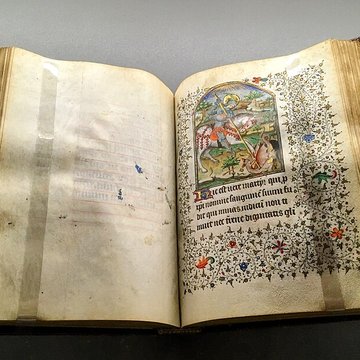 Hic est vere martyr qui p
xpi nomine sanguinē suum fu
dit qui minas iudicū non ti
muit nec terrene dignitatis gli